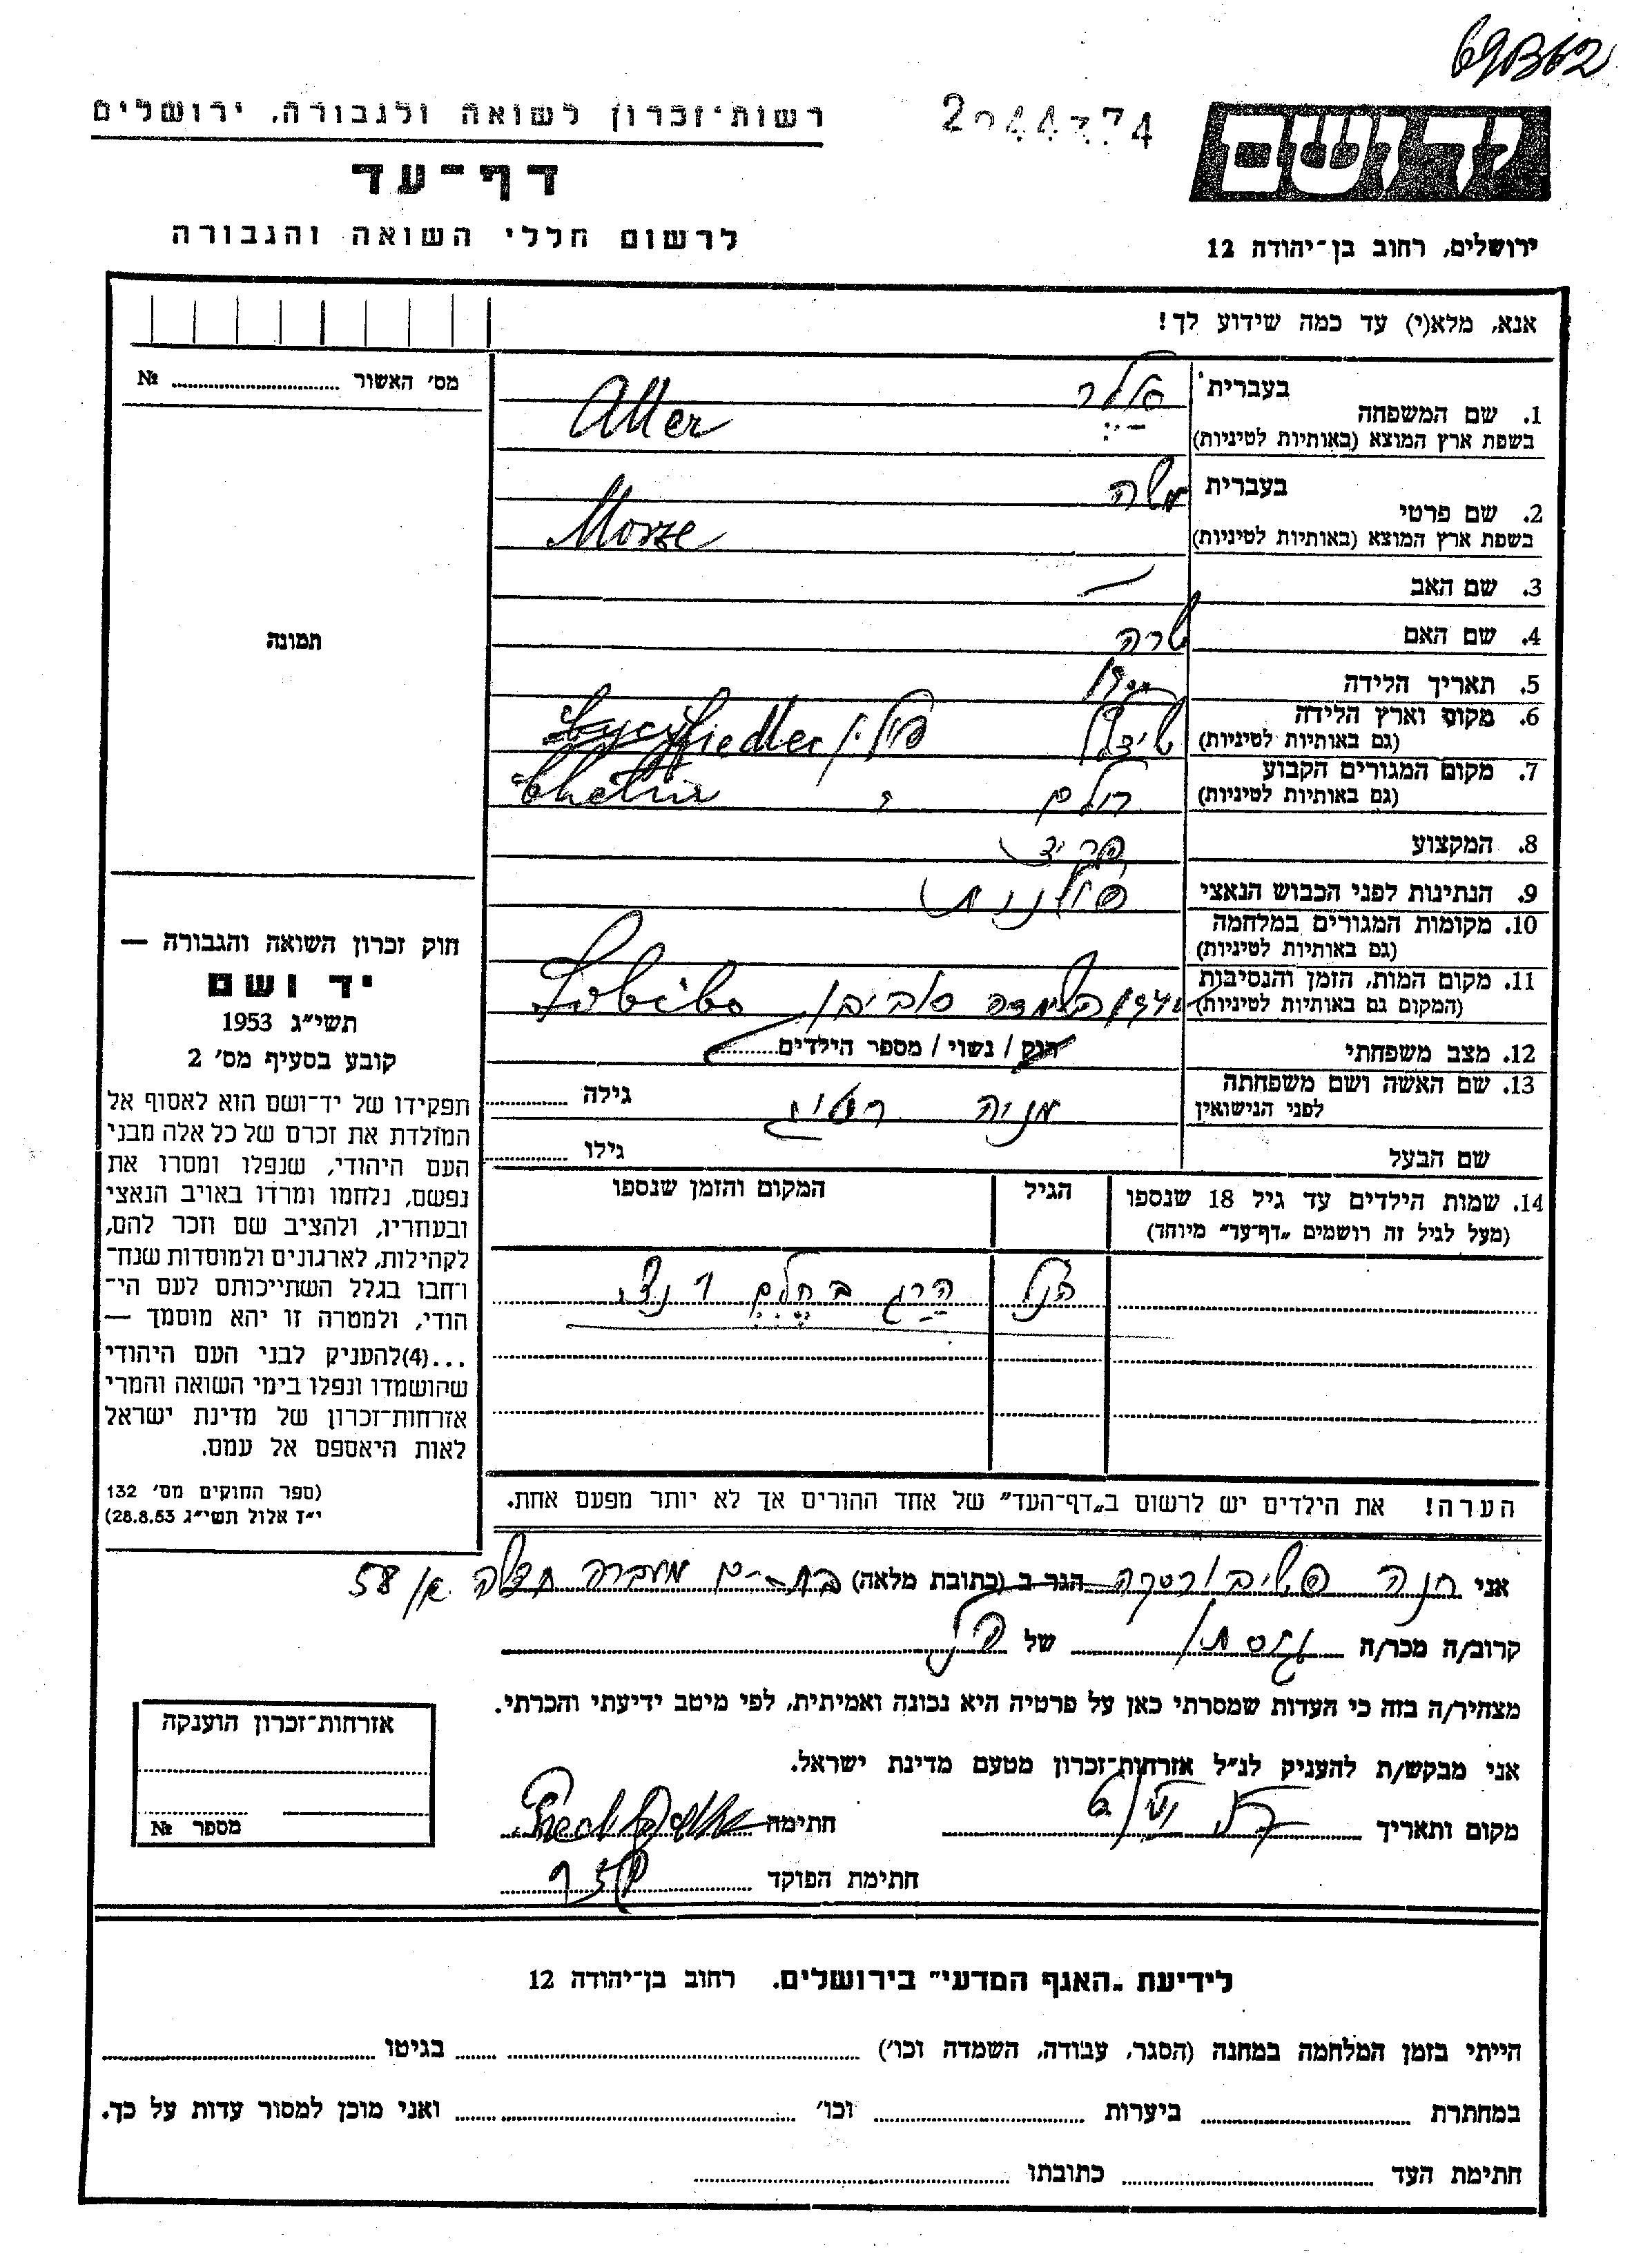 69B62
רשות־זכרון לשואה ולגבורה, ירושלים
יד ושם
דף־עד
לרשום חללי השואה והגבורה
ירושלים, רחוב בן־יהודה 12
אנא, מלא(י) עד כמה שידוע לך!
מס' האשור № 
1. שם המשפחה בעברית אלר
בשפת ארץ המוצא (באותיות לטיניות) Aller
2. שם פרטי בעברית משה
בשפת ארץ המוצא (באותיות לטיניות)
3. שם האב —
4. שם האם שרה
5. תאריך הלידה 1900
6. מקום וארץ הלידה
(גם באותיות לטיניות) פולין
7. מקום המגורים הקבוע
(גם באותיות לטיניות) חלם
8. המקצוע
9. הנתינות לפני הכבוש הנאצי פולנית
10. מקומות המגורים במלחמה
(גם באותיות לטיניות)
11. מקום המות, הזמן והנסיבות
(המקום גם באותיות לטיניות) סוביבור Sobibo
12. מצב משפחתי רוק / נשוי / מספר הילדים
13. שם האשה ושם משפחתה
לפני הנישואין מניה גילה
שם הבעל גילו
14. שמות הילדים עד גיל 18 שנספו
(מעל לגיל זה רושמים „דף־עד" מיוחד)
הגיל
המקום והזמן שנספו
הנ"ל הרג בחלם
הערה! את הילדים יש לרשום ב„דף־העד" של אחד ההורים אך לא יותר מפעם אחת.
תמונה
חוק זכרון השואה והגבורה —
יד ושם
תשי״ג 1953
קובע בסעיף מס' 2
תפקידו של יד־ושם הוא לאסוף אל
המולדת את זכרם של כל אלה מבני
העם היהודי, שנפלו ומסרו את
נפשם, נלחמו ומרדו באויב הנאצי
ובעוזריו, ולהציב שם וזכר להם,
לקהילות, לארגונים ולמוסדות שנח־
רחבו בגלל השתייכותם לעם הי־
הודי, ולמטרה זו יהא מוסמך —
...(4)להעניק לבני העם היהודי
שהושמדו ונפלו בימי השואה והמרי
אזרחות־זכרון של מדינת ישראל
לאות היאספם אל עמם.
(ספר החוקים מס' 132
י״ז אלול תשי״ג 28.8.53)
אני חנה הגר ב (כתובת מלאה) מעברה 58
קרוב/ה מכר/ה של
מצהיר/ה בזה כי העדות שמסרתי כאן על פרטיה היא נכונה ואמיתית, לפי מיטב ידיעתי והכרתי.
אני מבקש/ת להעניק לנ״ל אזרחות־זכרון מטעם מדינת ישראל.
מקום ותאריך חתימה
חתימת הפוקד
אזרחות־זכרון הוענקה
מספר №
לידיעת „האגף המדעי" בירושלים. רחוב בן־יהודה 12
הייתי בזמן המלחמה במחנה (הסגר, עבודה, השמדה וכו') בגיטו
במחתרת ביערות וכו' ואני מוכן למסור עדות על כך.
חתימת העד כתובתו